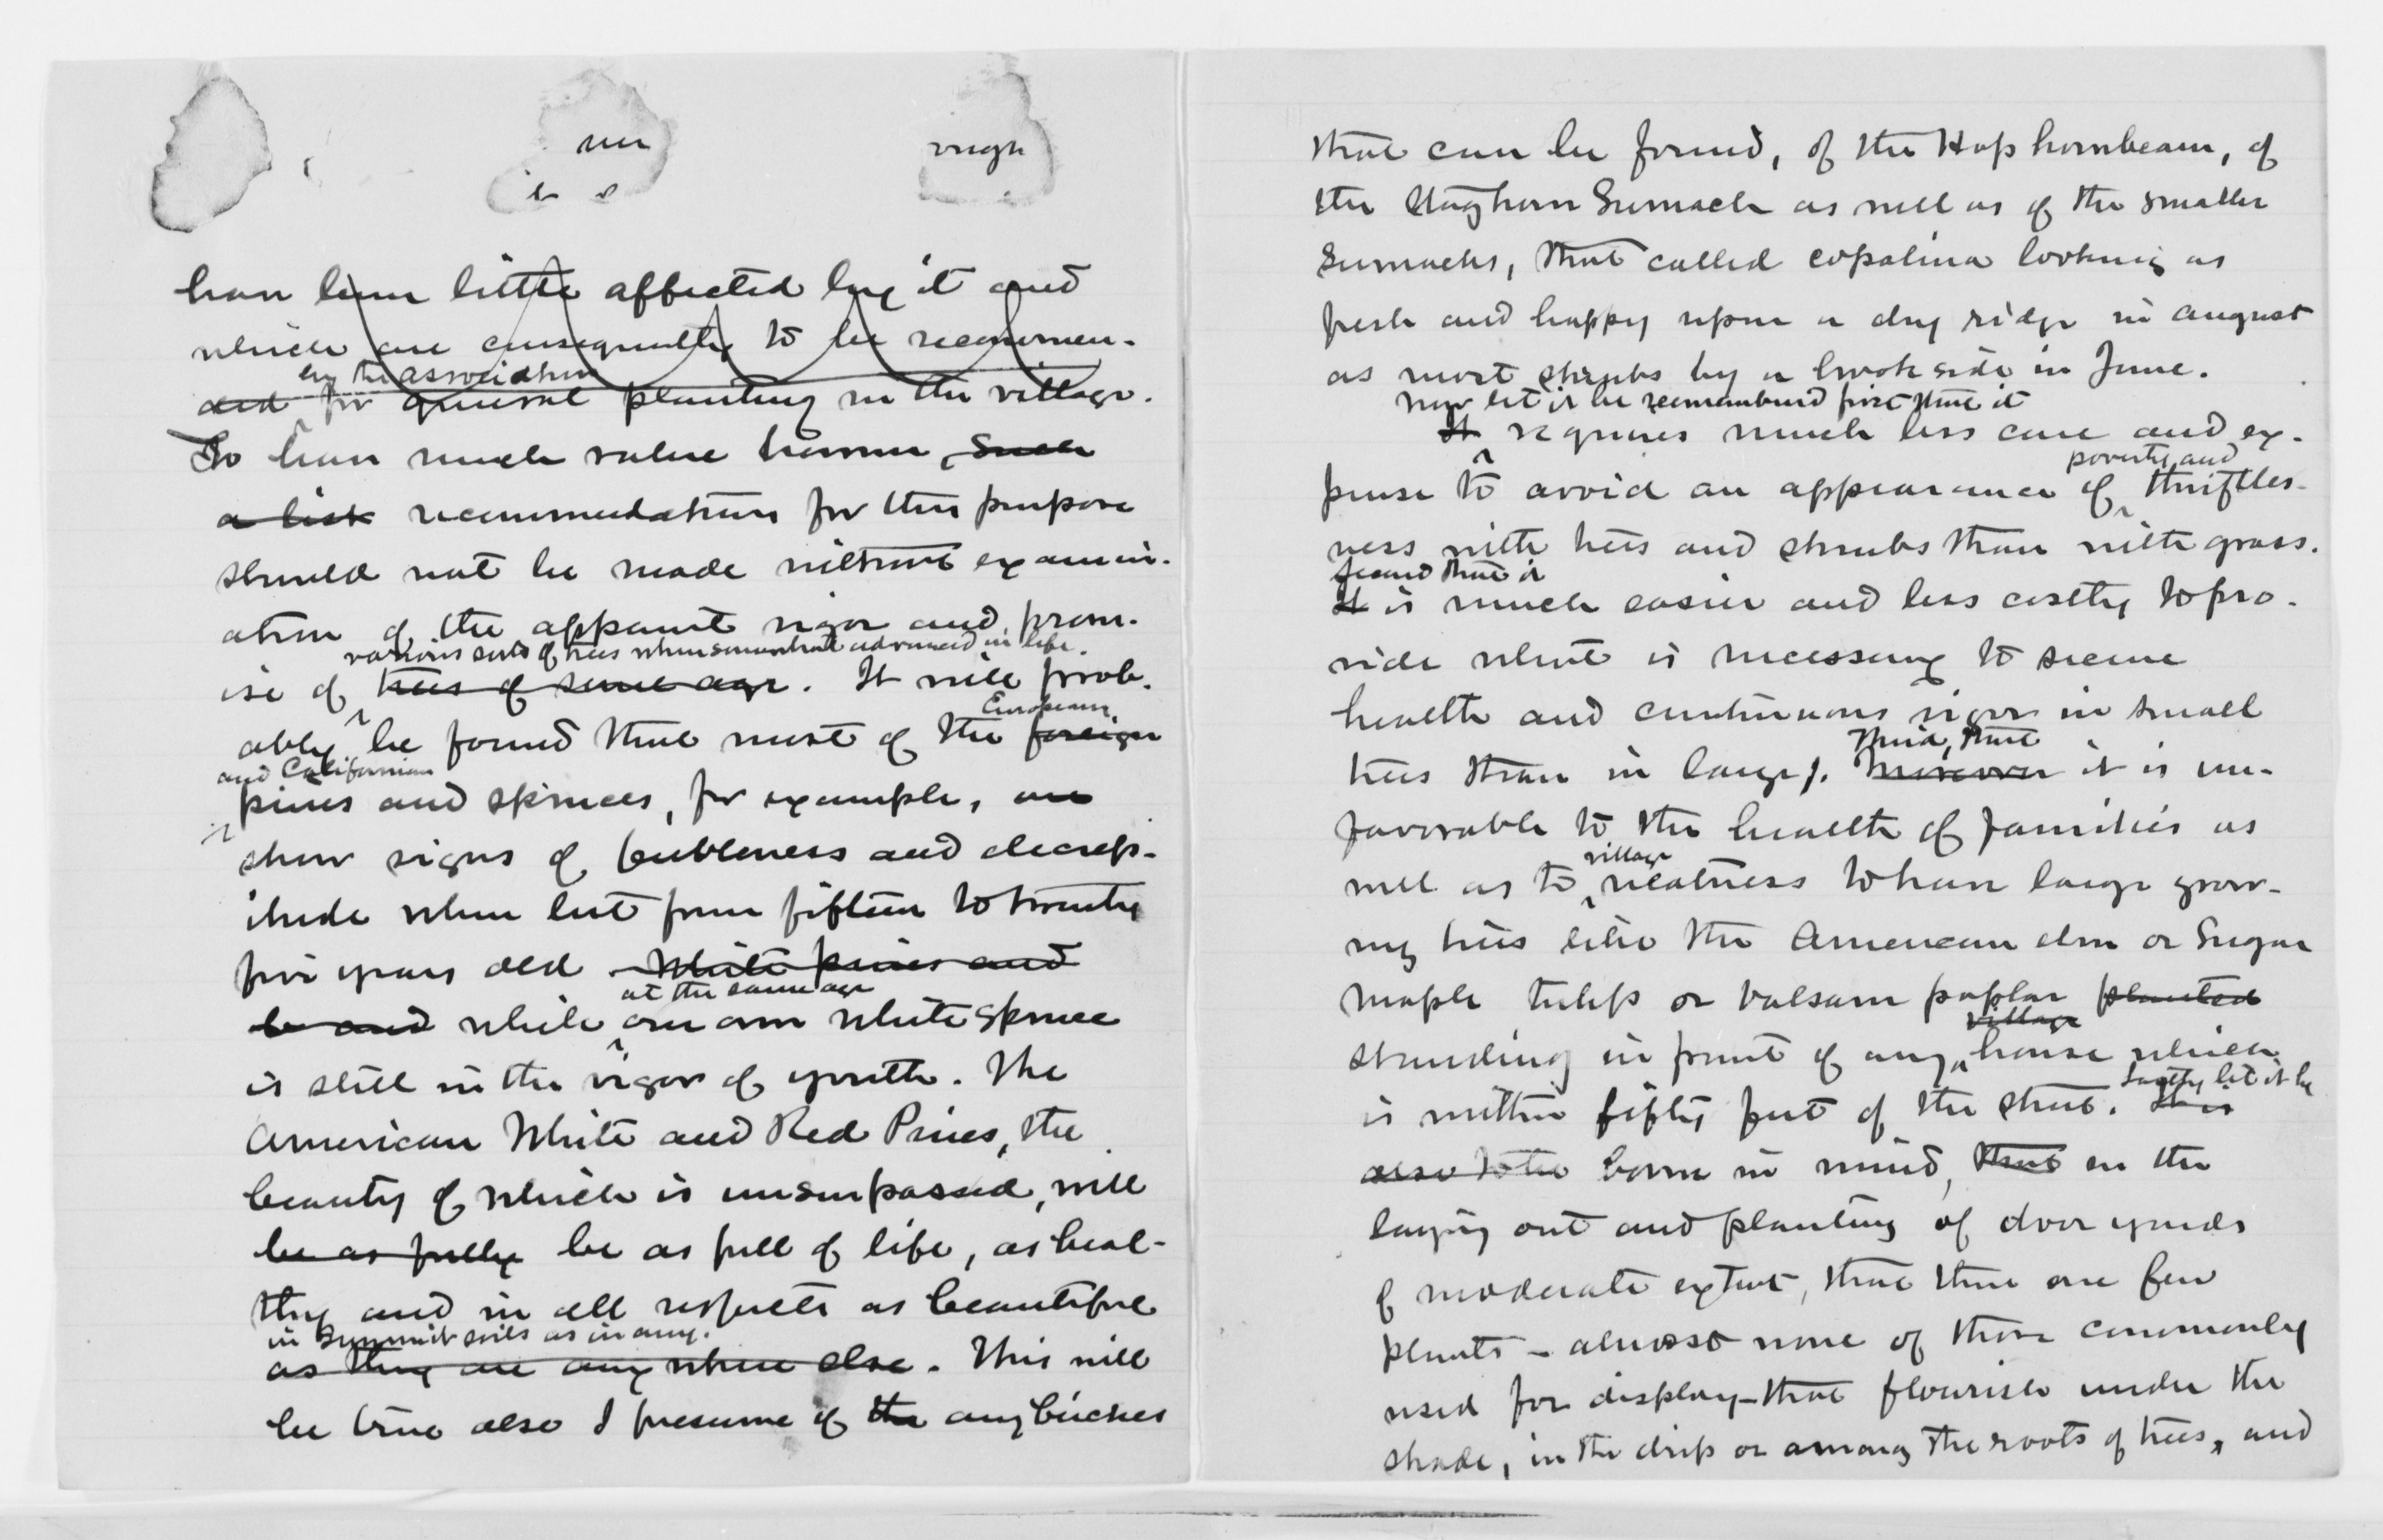 have been little affected by it and
which are consequently to be recommen-
by the association
ded for general planting in the village.
To have much value however, such
a list recommendations for this purpose
should not be made without examin-
ation of the apparent vigor and prom-
various sorts of trees when somewhat advanced in life.
ise of trees of some age. It will prob-
European
ably be found that most of the foreign
and Californian
pines and spruces, for example, are
show signs of feebleness and decrep-
itude when but from fifteen to twenty
five years old. White pines and
at the same age
be and while our own white spruce
is still in the vigor of youth. The
American White and Red Pines, the
beauty of which is unsurpassed, will
be as fully be as full of life, as heal-
thy and in all respects as beautiful
in Summit soils as in any.
as they are any where else. This will
be true also I presume of the any birches
that can be found, of the Hop hornbeam, of
the Staghorn Sumach as well as of the smaller
Sumachs, that called copalina looking as
fresh and happy upon a dry ridge in August
as most shrubs by a brook side in June.
Now let it be remembered first that it
It requires much less care and ex-
poverty and
pense to avoid an appearance of thriftles-
ness with trees and shrubs than with grass.
Second that it
It is much easier and less costly to pro-
vide what is necessary to secure
health and continuous vigor in small
Third, that
trees than in large. Moreover it is un-
favorable to the health of families as
village
well as to neatness to have large grow-
ing trees like the American elm or Sugar
maple tulip or balsam poplar planted
village
standing in front of any house which
Lastly let it be
is within fifty feet of the street. It is
also to be borne in mind, that in the
laying out and planting of door yards
of moderate extent, that there are few
plants - almost none of those commonly
used for display - that flourish under the
shade, in the drip or among the roots of trees, and